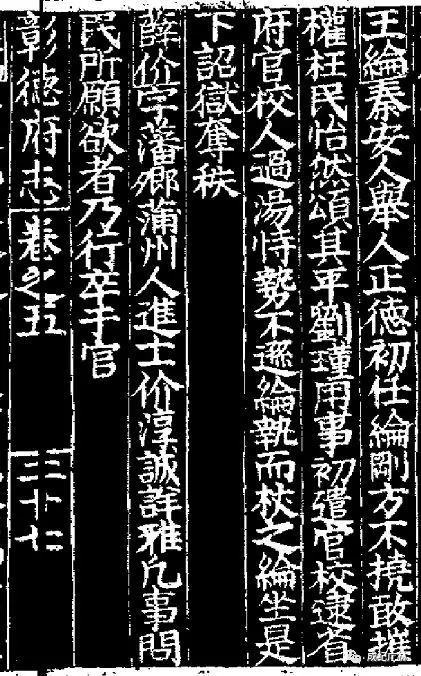 王綸秦安人舉人正德初任綸剛方不撓敢摧
權枉民怡然頌其平劉瑾用事初遣官校逮省
府官校人過湯恃勢不遜綸執而杖之綸坐是
下詔獄奪秩
薛价字藩鄉蒲州人進士价淳誠詳雅凡事問
民所願欲者乃行卒于官
彰德府志卷之五
三十七